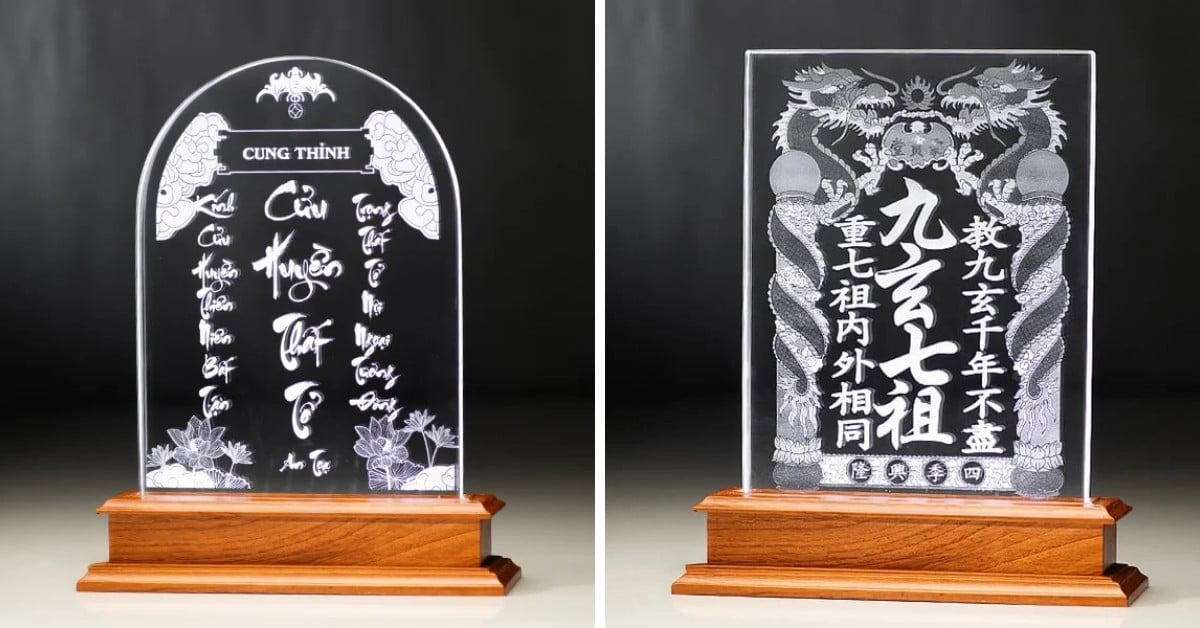 CUNG THỈNH
Kính Cửu Huyền Thiên Niên Bất Tận
Cửu Huyền Thất Tổ
An Tọa
Trọng Thất Tổ Nội Ngoại Tương Đồng
教九玄千年不盡
九玄七祖
重七祖内外相同
四季興隆